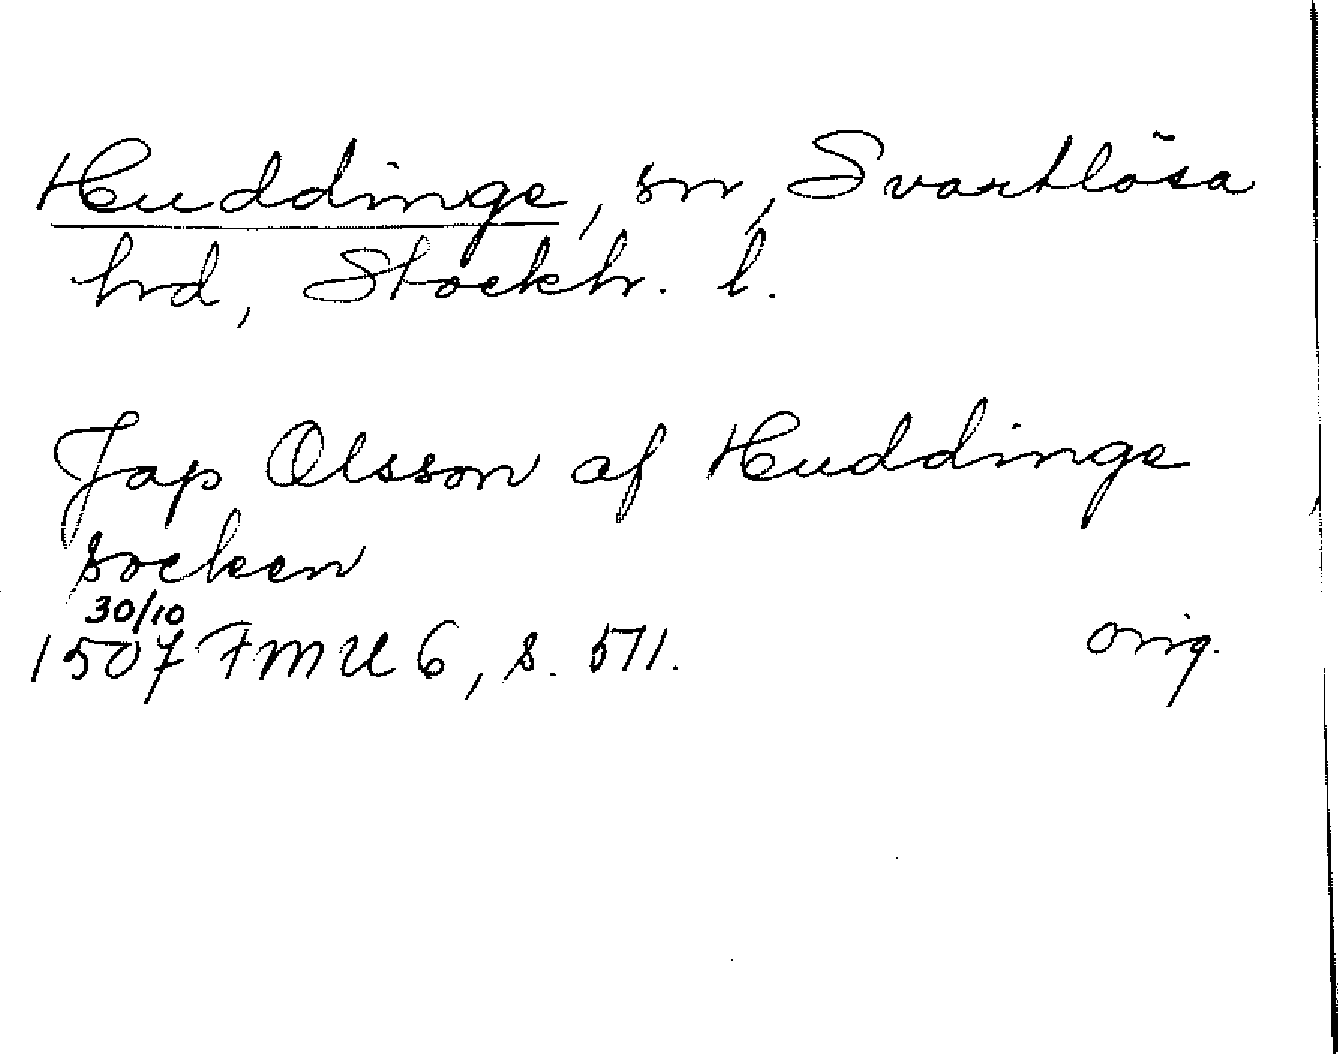 Huddinge, sn, Svartlösa
hrd, Stockh. l.
Jap Olsson af Huddinge
socken
30/10
1507 FMU 6, s. 571.
orig.